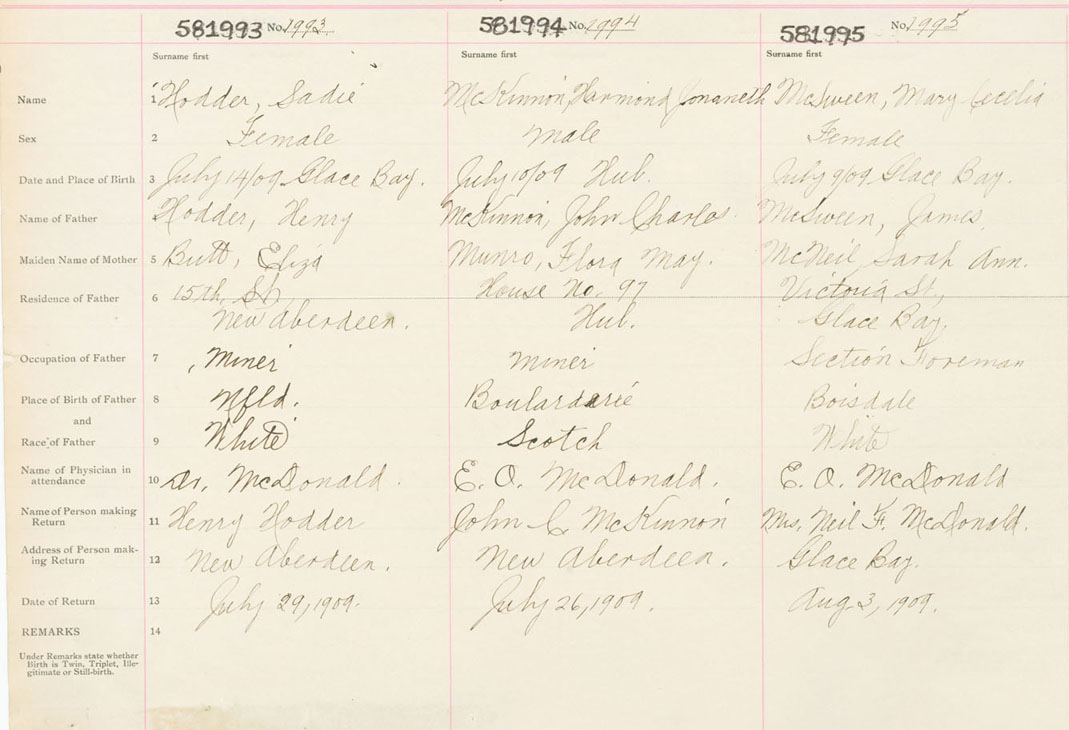 581993 No. 1993 581994 No. 1994 581995 No. 1995
Surname first Surname first Surname first
Name 1 Hodder, Sadie McKinnon, Harmond McSween, Mary Cecelia
Sex 2 Female Male Female
Date and Place of Birth 3 July 14/09 Glace Bay. July 10/09 Hub. July 9/09 Glace Bay.
Name of Father Hodder, Henry McKinnon, John Charles McSween, James.
Maiden Name of Mother 5 Butt, Eliza Munro, Flora May. McNeil, Sarah Ann.
Residence of Father 6 15th, St, House No. 97 Victoria St.,
New Aberdeen. Hub. Glace Bay.
Occupation of Father 7 Miner Miner Section Foreman
Place of Birth of Father 8 Nfld. Boularderie Boisdale
and
Race of Father 9 White Scotch White
Name of Physician in
attendance 10 Dr. McDonald. E. O. McDonald. E. O. McDonald
Name of Person making
Return 11 Henry Hodder John C. McKinnon Mrs. Neil F. McDonald.
Address of Person mak-
ing Return 12 New Aberdeen. New Aberdeen. Glace Bay.
Date of Return 13 July 29, 1909. July 26, 1909. Aug 3, 1909.
REMARKS 14
Under Remarks state whether
Birth is Twin, Triplet, Ille-
gitimate or Still-birth.